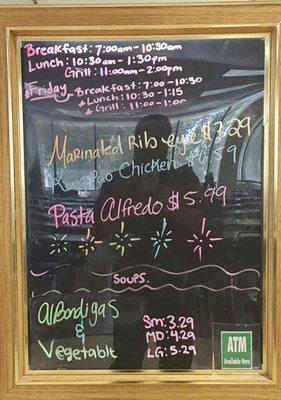 Breakfast: 7:00am - 10:30am
Lunch: 10:30am - 1:30pm
Grill: 11:00am - 2:00pm
Friday Breakfast: 7:00 - 10:30
Lunch: 10:30 - 1:15
Grill: 11:00 - 1:00
Marinated Rib eye
Kung Pao Chicken
Pasta Alfredo $5.99
Soups.
Albondigas
&
Vegetable
Sm: 3.29
MD: 4.29
LG: 5.29
ATM
Available Here